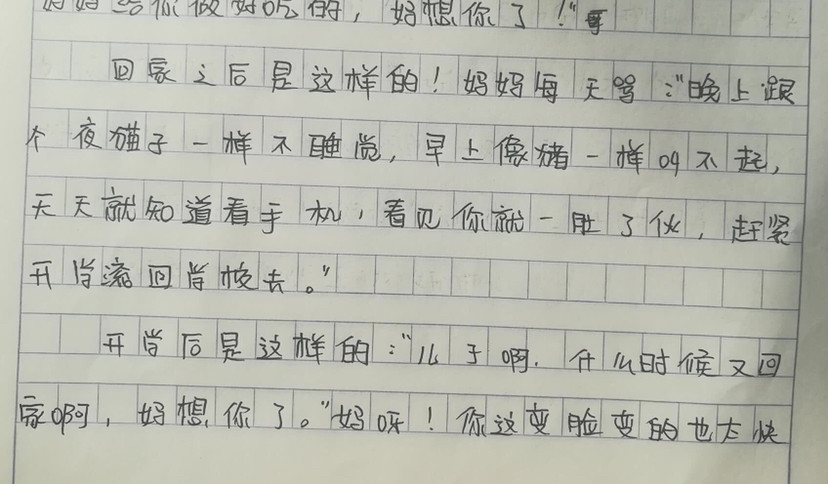 妈妈给你做好吃的，好想你了！"
回家之后是这样的！妈妈每天骂："晚上跟
个夜猫子一样不睡觉，早上像猪一样叫不起，
天天就知道看手机，看见你就一肚了伙，赶紧
开学滚回学校去。"
开学后是这样的："儿子啊．什么时候又回
家啊，好想你了。"妈呀！你这变脸变的也太快